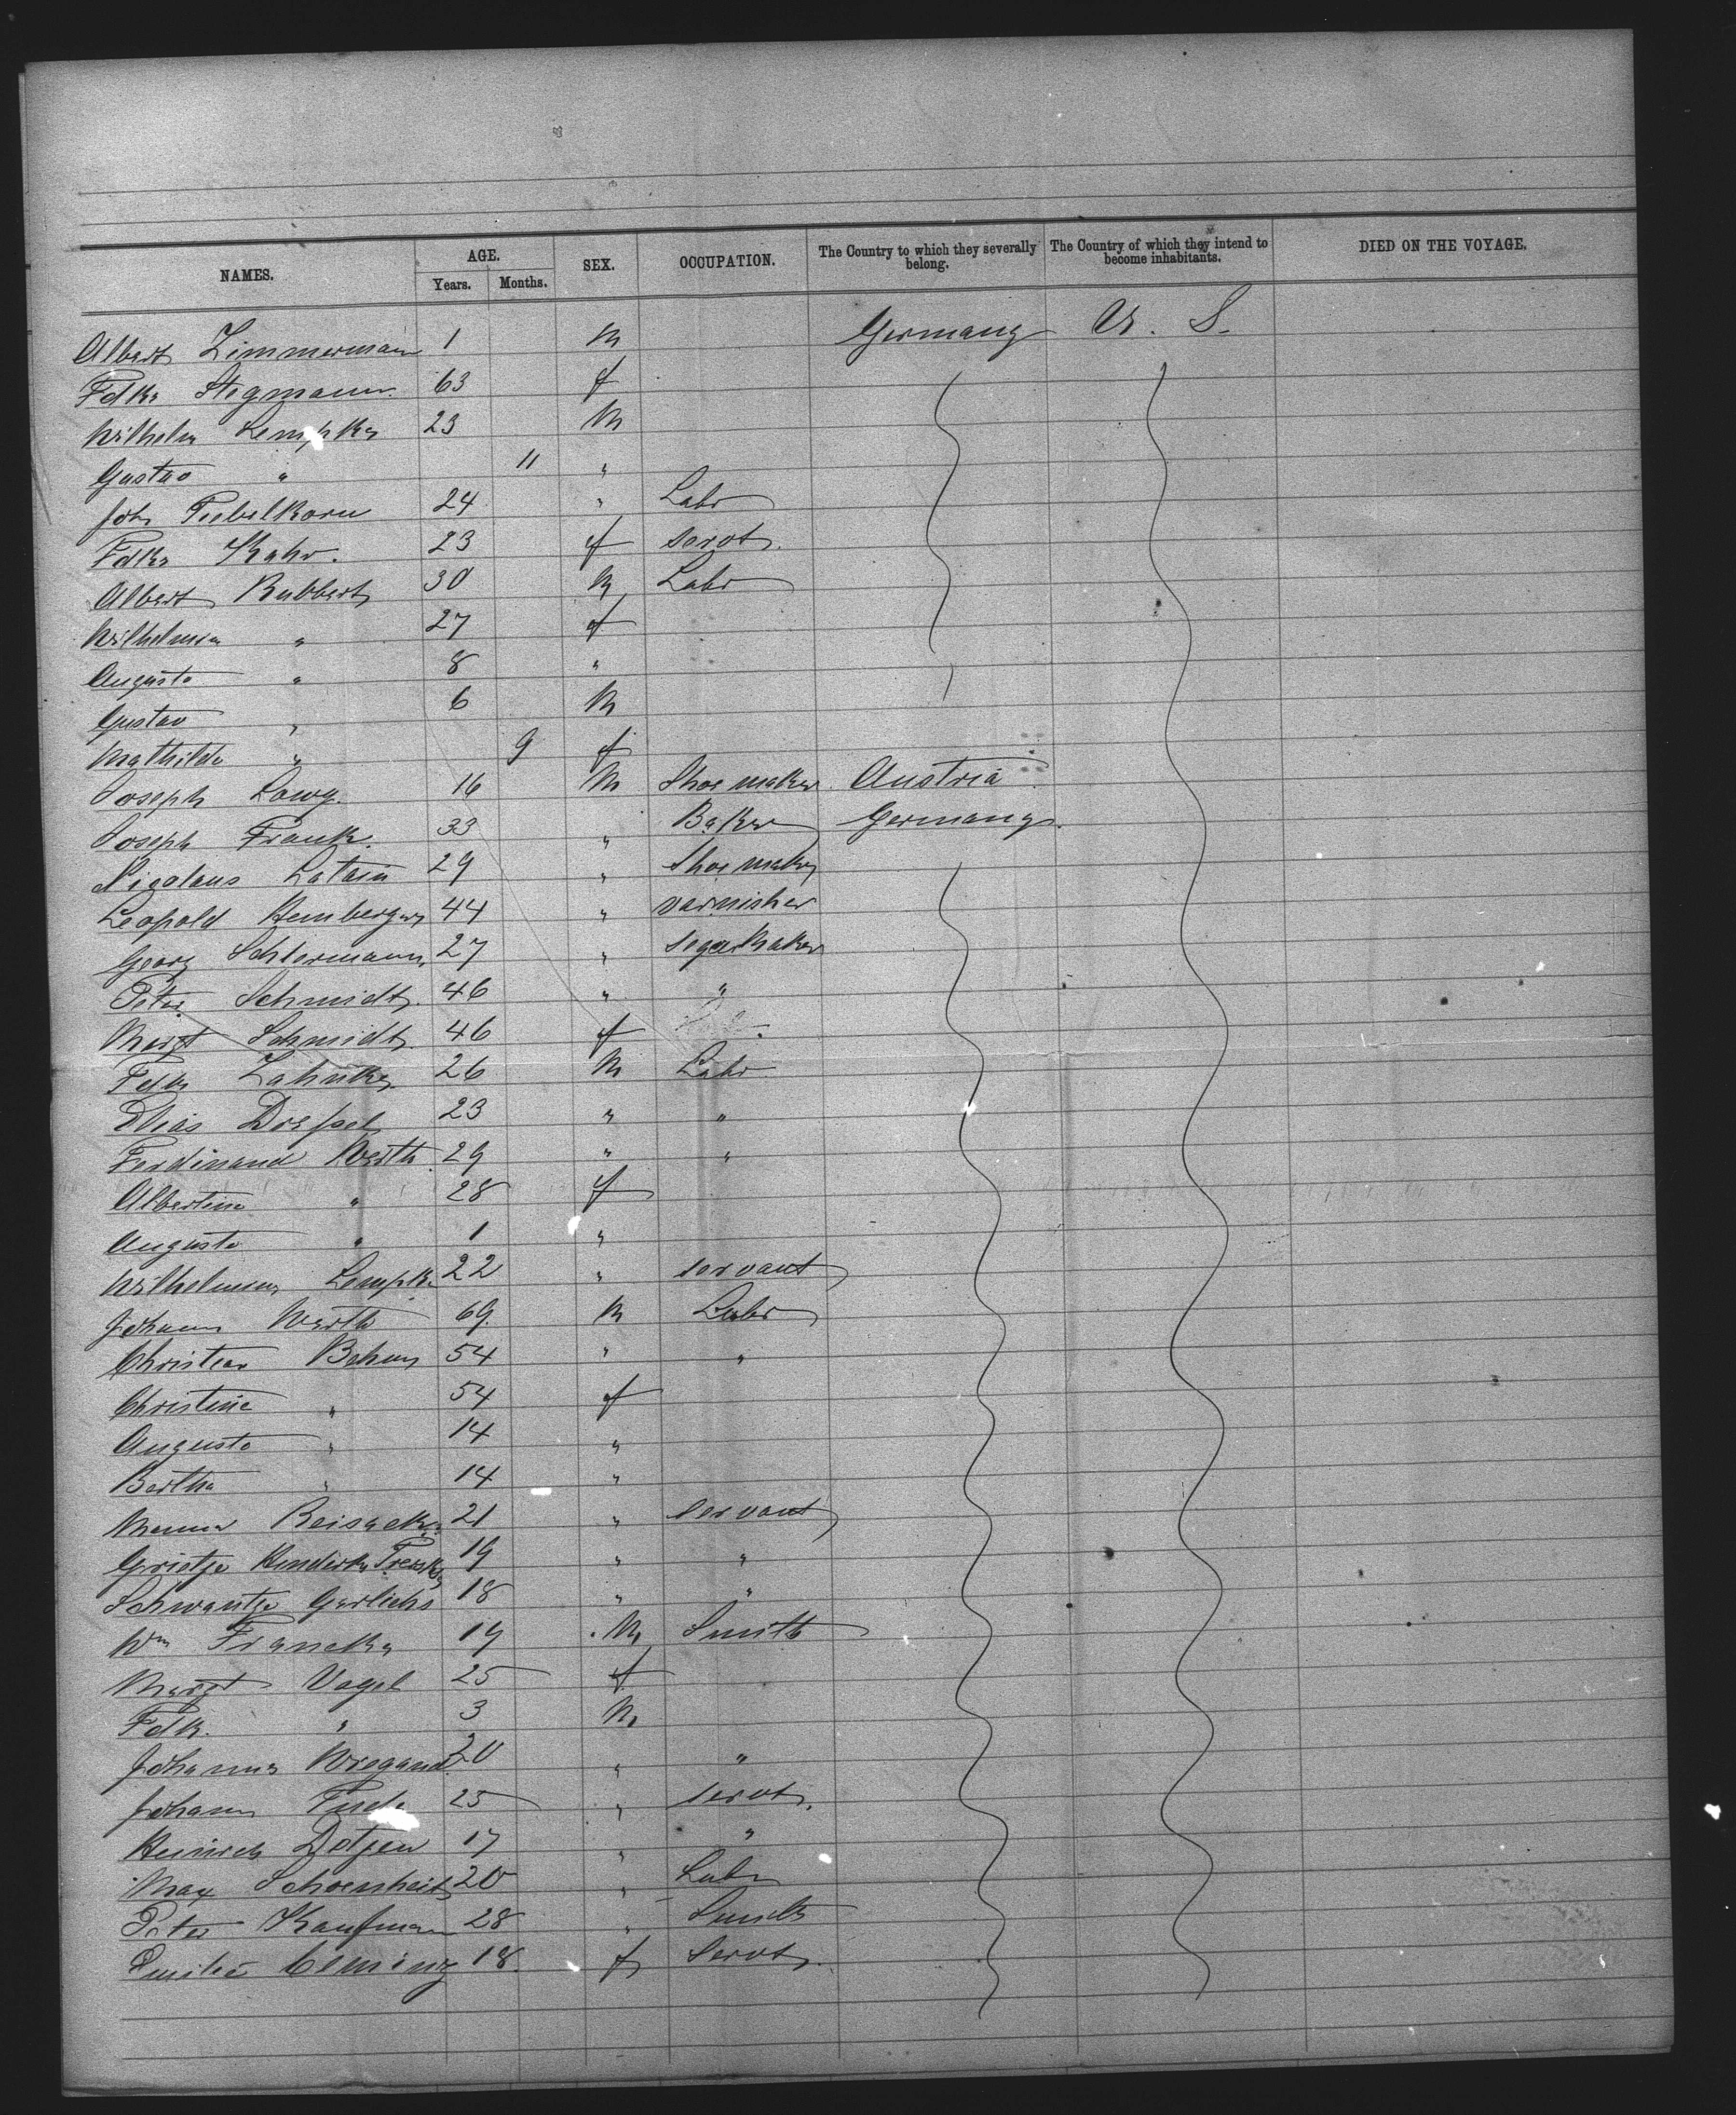 NAMES. AGE. Years. Months. SEX. OCCUPATION. The Country to which they severally belong. The Country of which they intend to become inhabitants. DIED ON THE VOYAGE.
Albert Zimmermann 1 M Germany U. S.
Fdke Stegmann. 63 f
Wilhelm Lempke 23 M
Gustav " 11 "
Joh Tiebelkorn 24 " Labr
Fdke Kahr. 23 f servt.
Albert Rubbert 30 M Labr
Wilhelmin " 27 f
Augusta " 8 "
Gustav " 6 M
Mathilde " 9 f
Joseph Lowy. 16 M Shoemaker Austria
Joseph Frank. 33 " Baker Germany.
Nicolaus Latain 29 " Shoemaker
Leopold Hemberger 44 " varnisher
Georg Schlermann 27 " segar Maker
Peter Schmidt. 46 " "
Margt Schmidt. 46 f
Fdk Zahnke 26 M Labr
Elias Dressel 23 " "
Ferdinand Werth 29 " "
Albertine " 28 f
Augusta " 1 "
Wilhelmine Lempke 22 " servant
Johann Werth 69 M Labr
Christian Behm 54 " "
Christine " 54 f
Augusta " 14 "
Bertha " 14 "
Menna Reisacker 21 " servant
Grietje Hendirka 19 " "
Schwantje Gerlichs 18 " "
Wm Francke 19 M Smith
Margt Vogel 25 f
Fdk. " 3 M
Johannes Wiegand. 20 " "
Johann 25 " servt.
Heinrich Dotjen 17 " "
Max Schoenheit 20 " Labr
Peter Kaufman 28 " Smith
Emilie 18. f Servt.